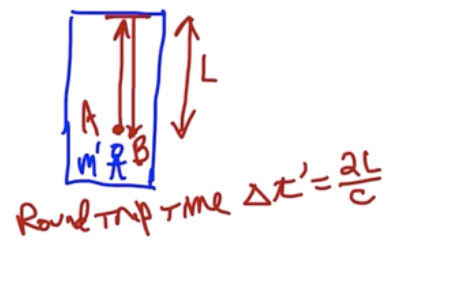 L
A
m' B
Round Trip Time Δt' = 2L/c